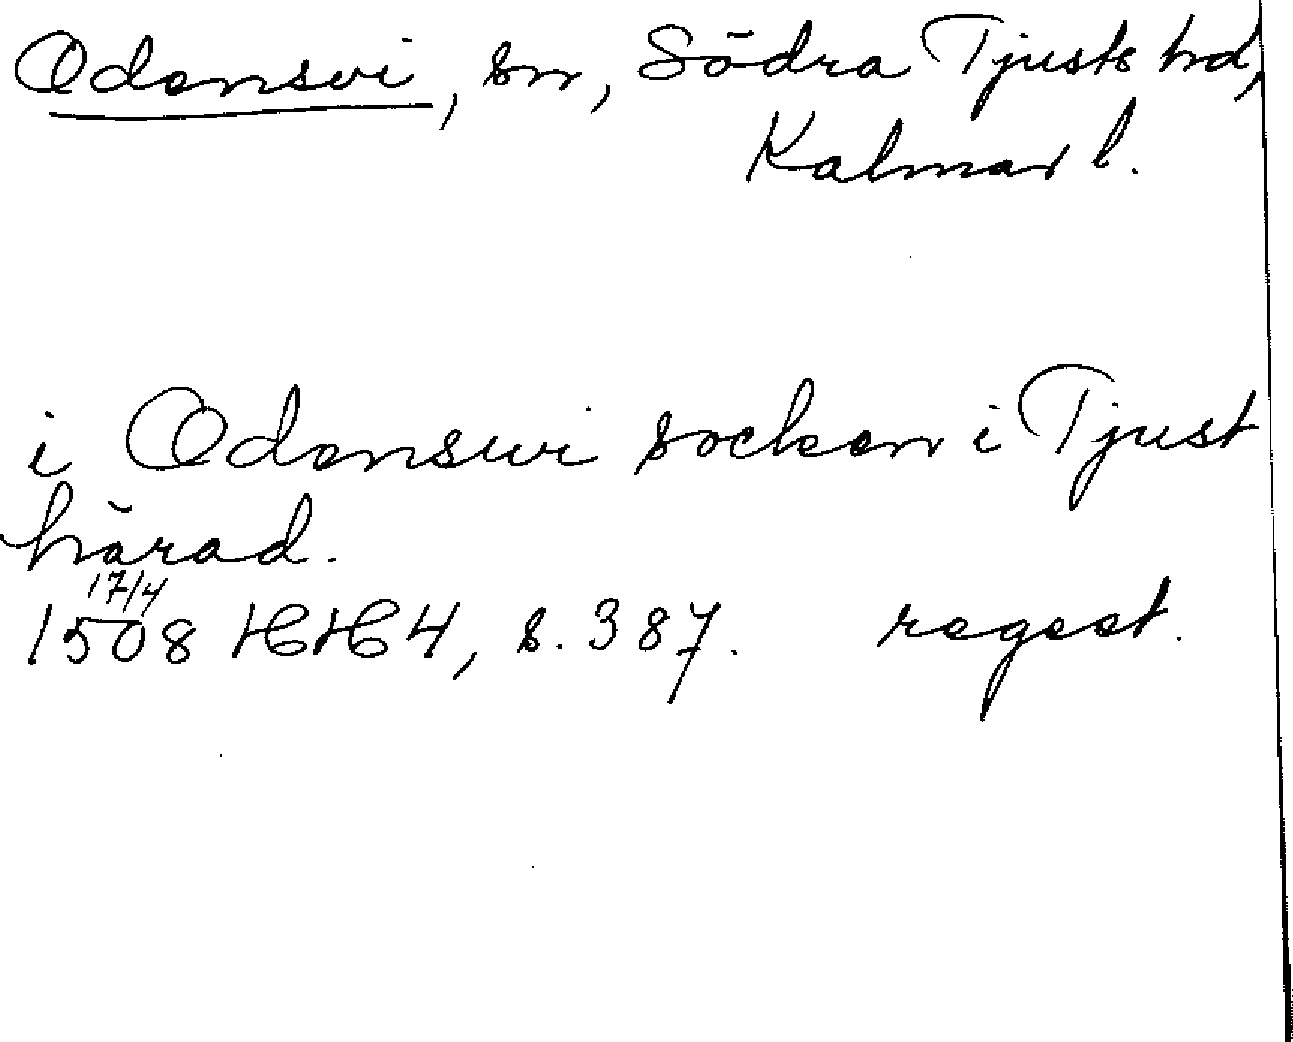 Odensvi, sn, Södra Tjusts hd,
Kalmar l.
i Odenswi socken i Tjust
härad.
17/4
1508 HH 4, s. 387. regest.